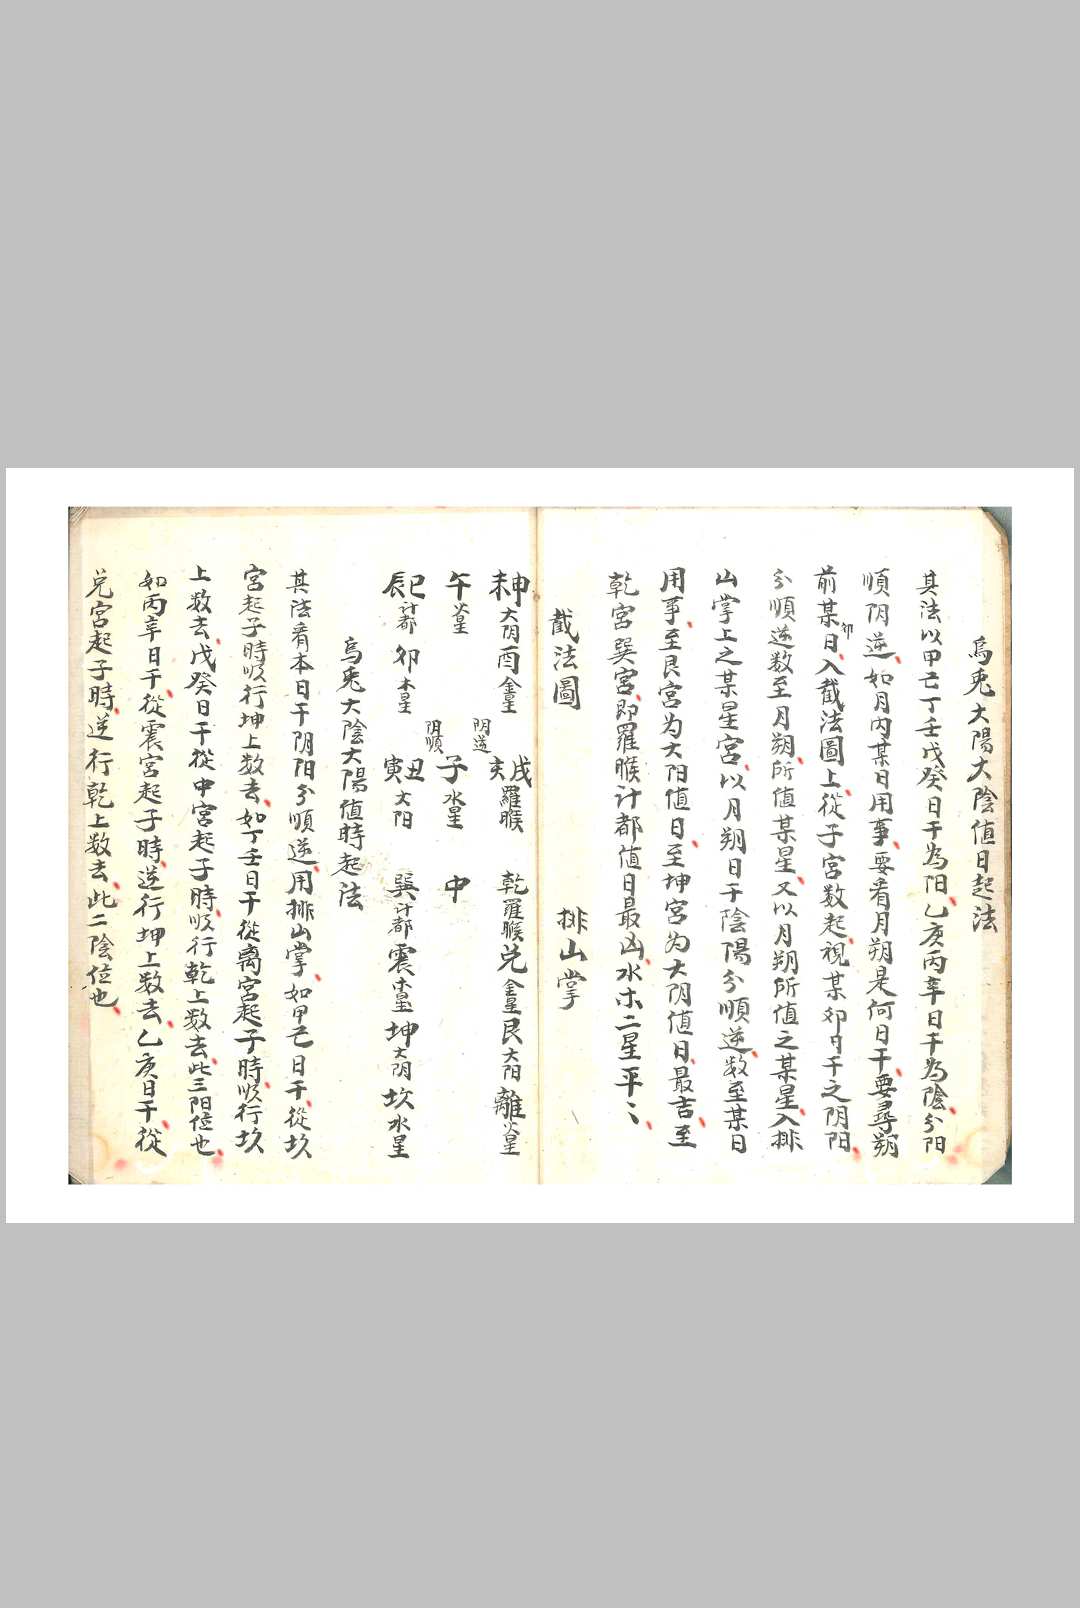 烏兎太陽太陰值日起法
其法以甲己丁壬戊癸日干為阳乙庚丙辛日干為陰分阳
順阴逆如月内某日用事要看月朔是何日干要尋朔
前某卯日入截法圖上從子宮数起視某卯日干之阴阳
分順逆数至月朔所值某星又以月朔所值之某星入排
山掌上之某星宮以月朔日干陰陽分順逆数至某日
用事至艮宮为太阳值日至坤宮为太阴值日最吉至
乾宮巽宮即羅睺计都值日最凶水木二星平〻
截法圖 排山掌
未申太阴酉金星 阴逆 戌亥羅睺 乾羅睺兑金星艮太阳離火星
午火星 阳順 子水星 中
辰巳计都 卯木星 寅丑太阳 巽计都震木星坤太阴坎水星
烏兎太陰太陽值時起法
其法看本日干阴阳分順逆用排山掌如甲己日干從坎
宮起子時順行坤上数去如丁壬日干從离宮起子時順行坎
上数去戊癸日干從中宮起子時順行乾上数去此三阳位也
如丙辛日干從震宮起子時逆行坤上数去乙庚日干從
兑宮起子時逆行乾上数去此二陰位也